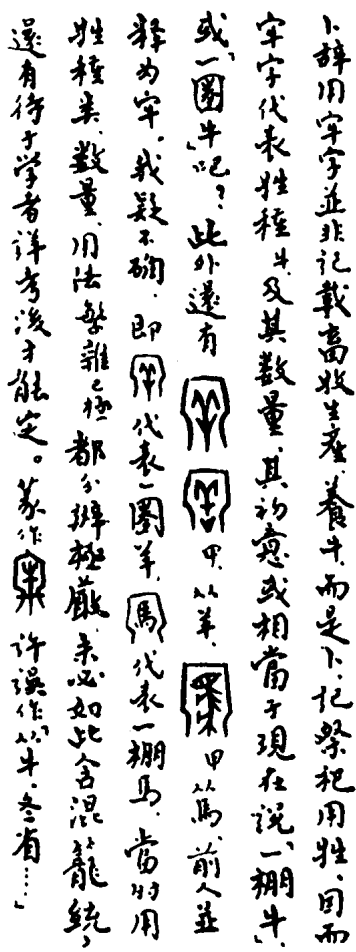 卜辞用牢字並非記載畜牧生産、養牛、而是卜、記祭祀用牲、因而
牢字代表牲種牛及其数量、其初意或相當于現在説「一棚牛」
或「一圈牛」吧？此外還有　甲、从羊、　甲从馬、前人並
釋为牢。我疑不確、即　代表一圈羊、　代表一棚馬、當时用
牲種类、数量、用法繁雜已極都分辨極嚴、未必如此含混籠統、
還有待于学者詳考後才能定。篆作　許誤作「从牛、冬省……」